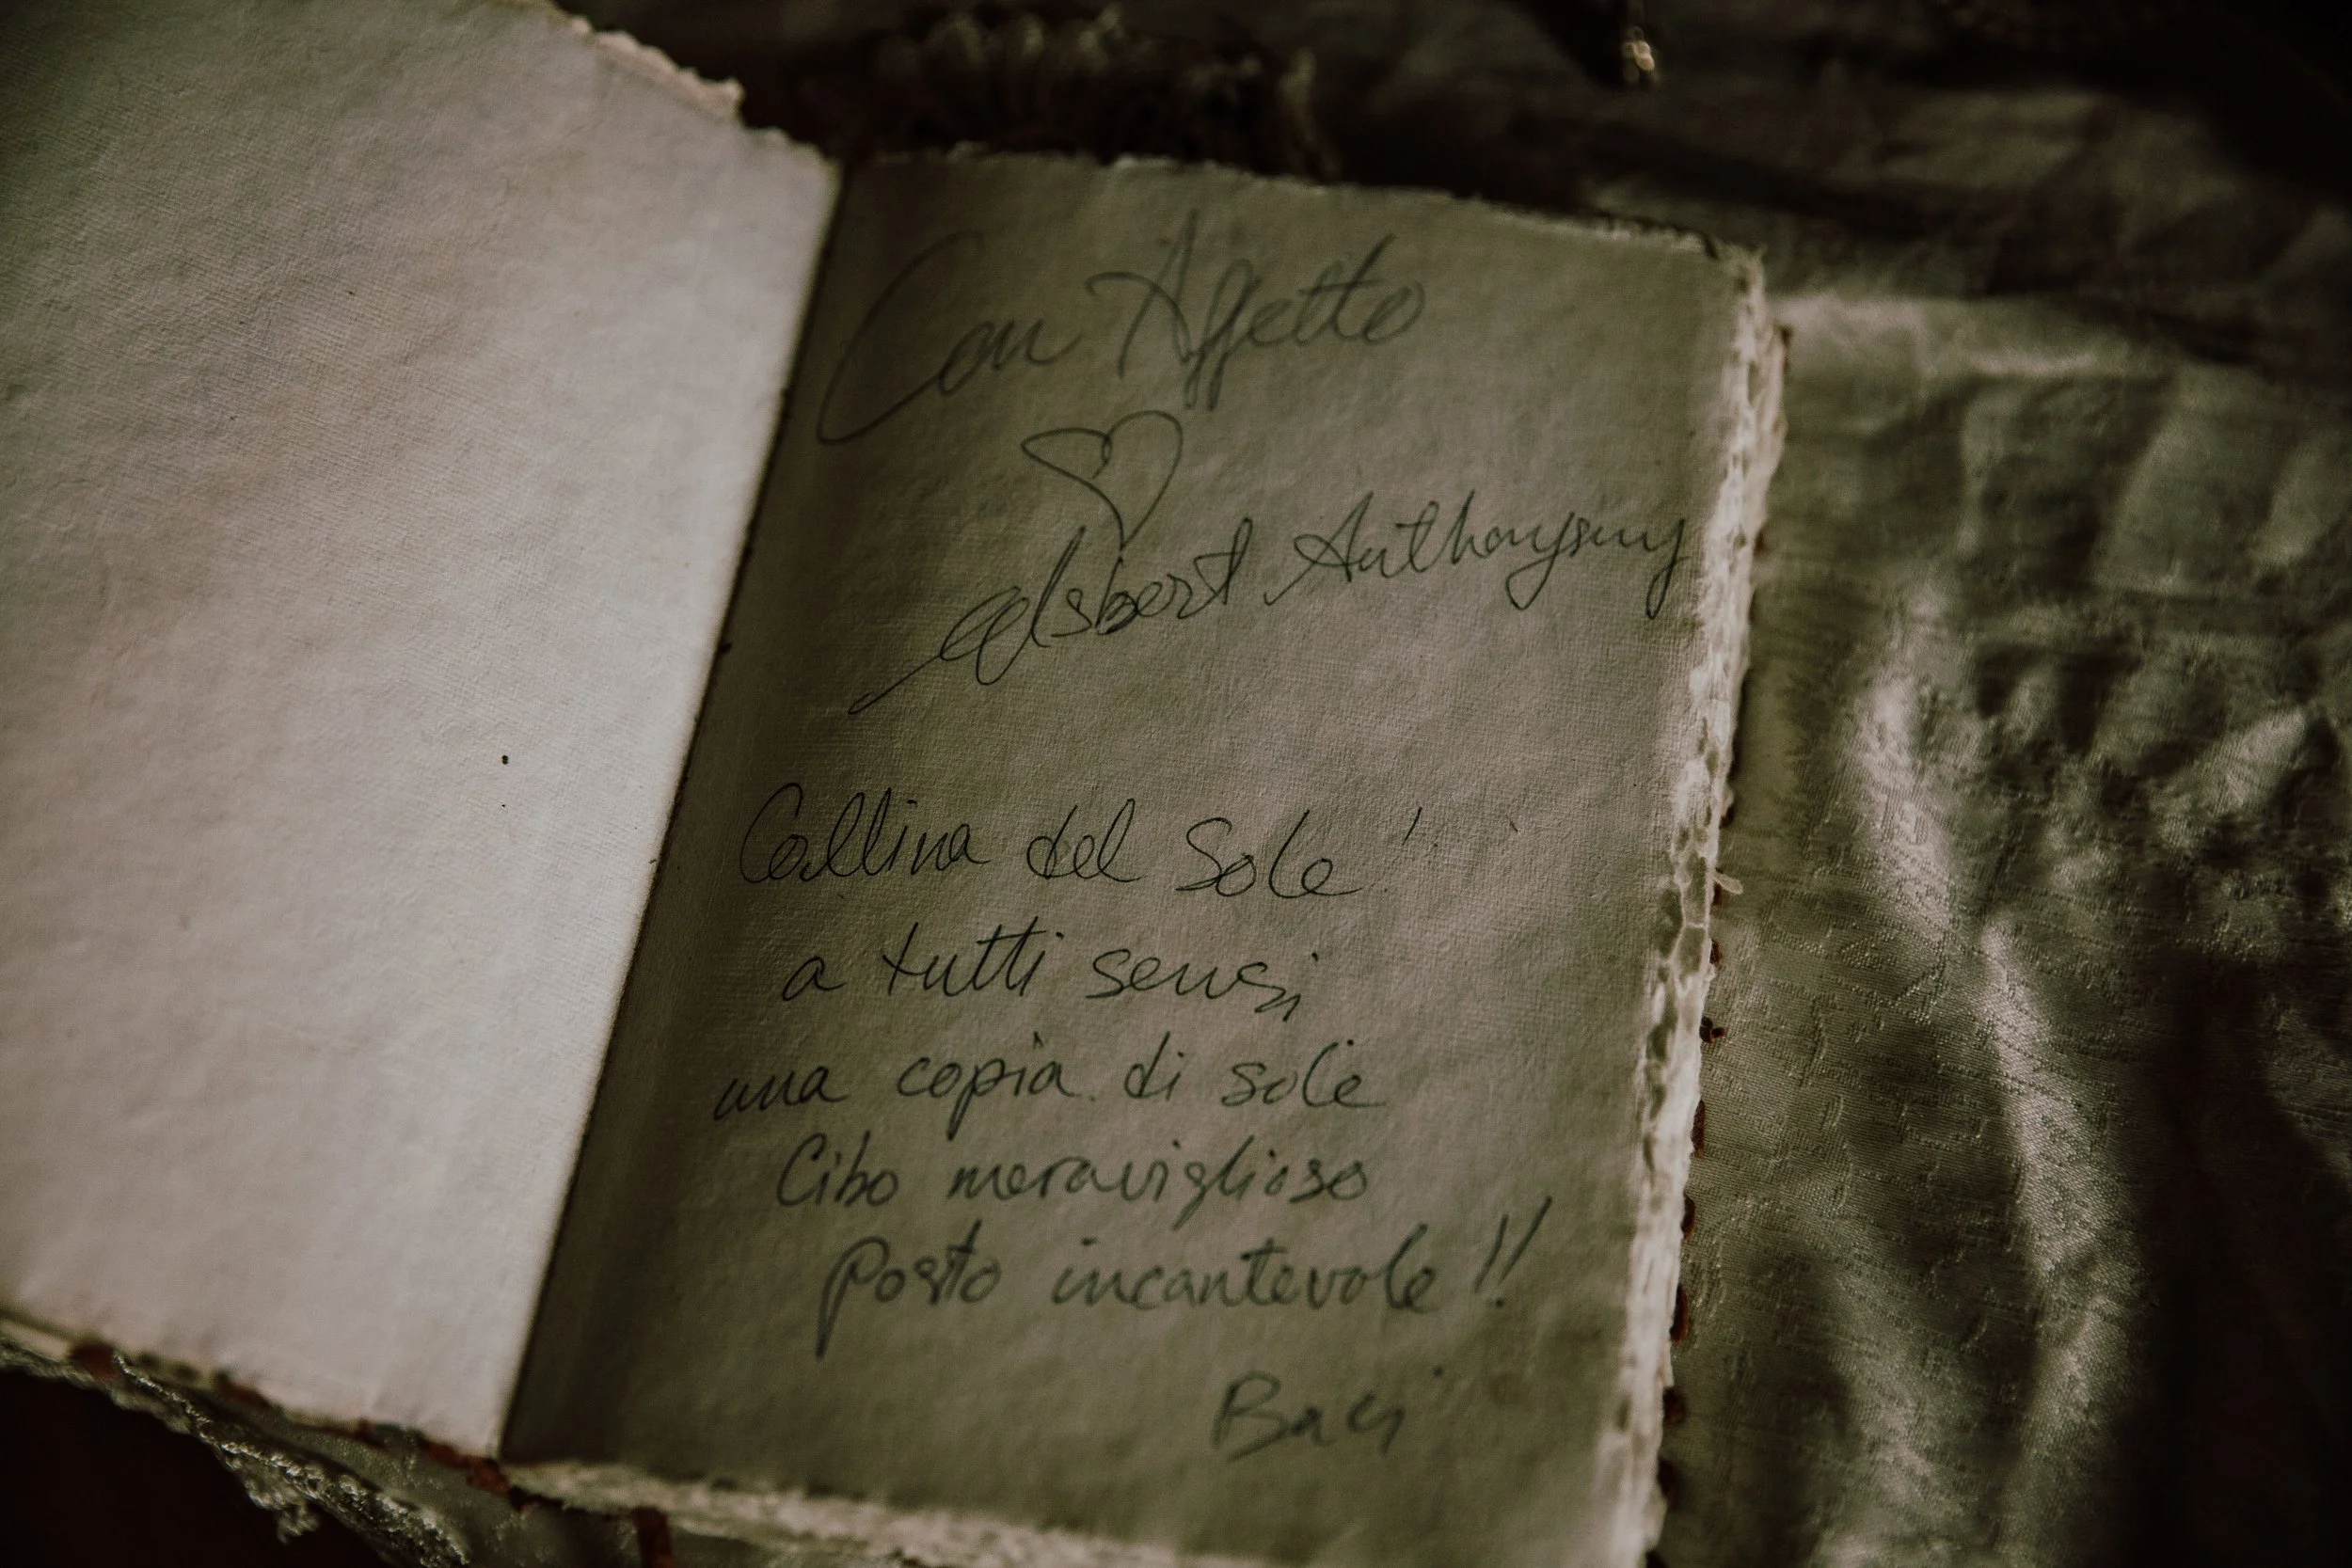 Con Affetto
Anthony
Collina del Sole!
a tutti sensi
una copia di sole
Cibo meraviglioso
Posto incantevole!!
Baci